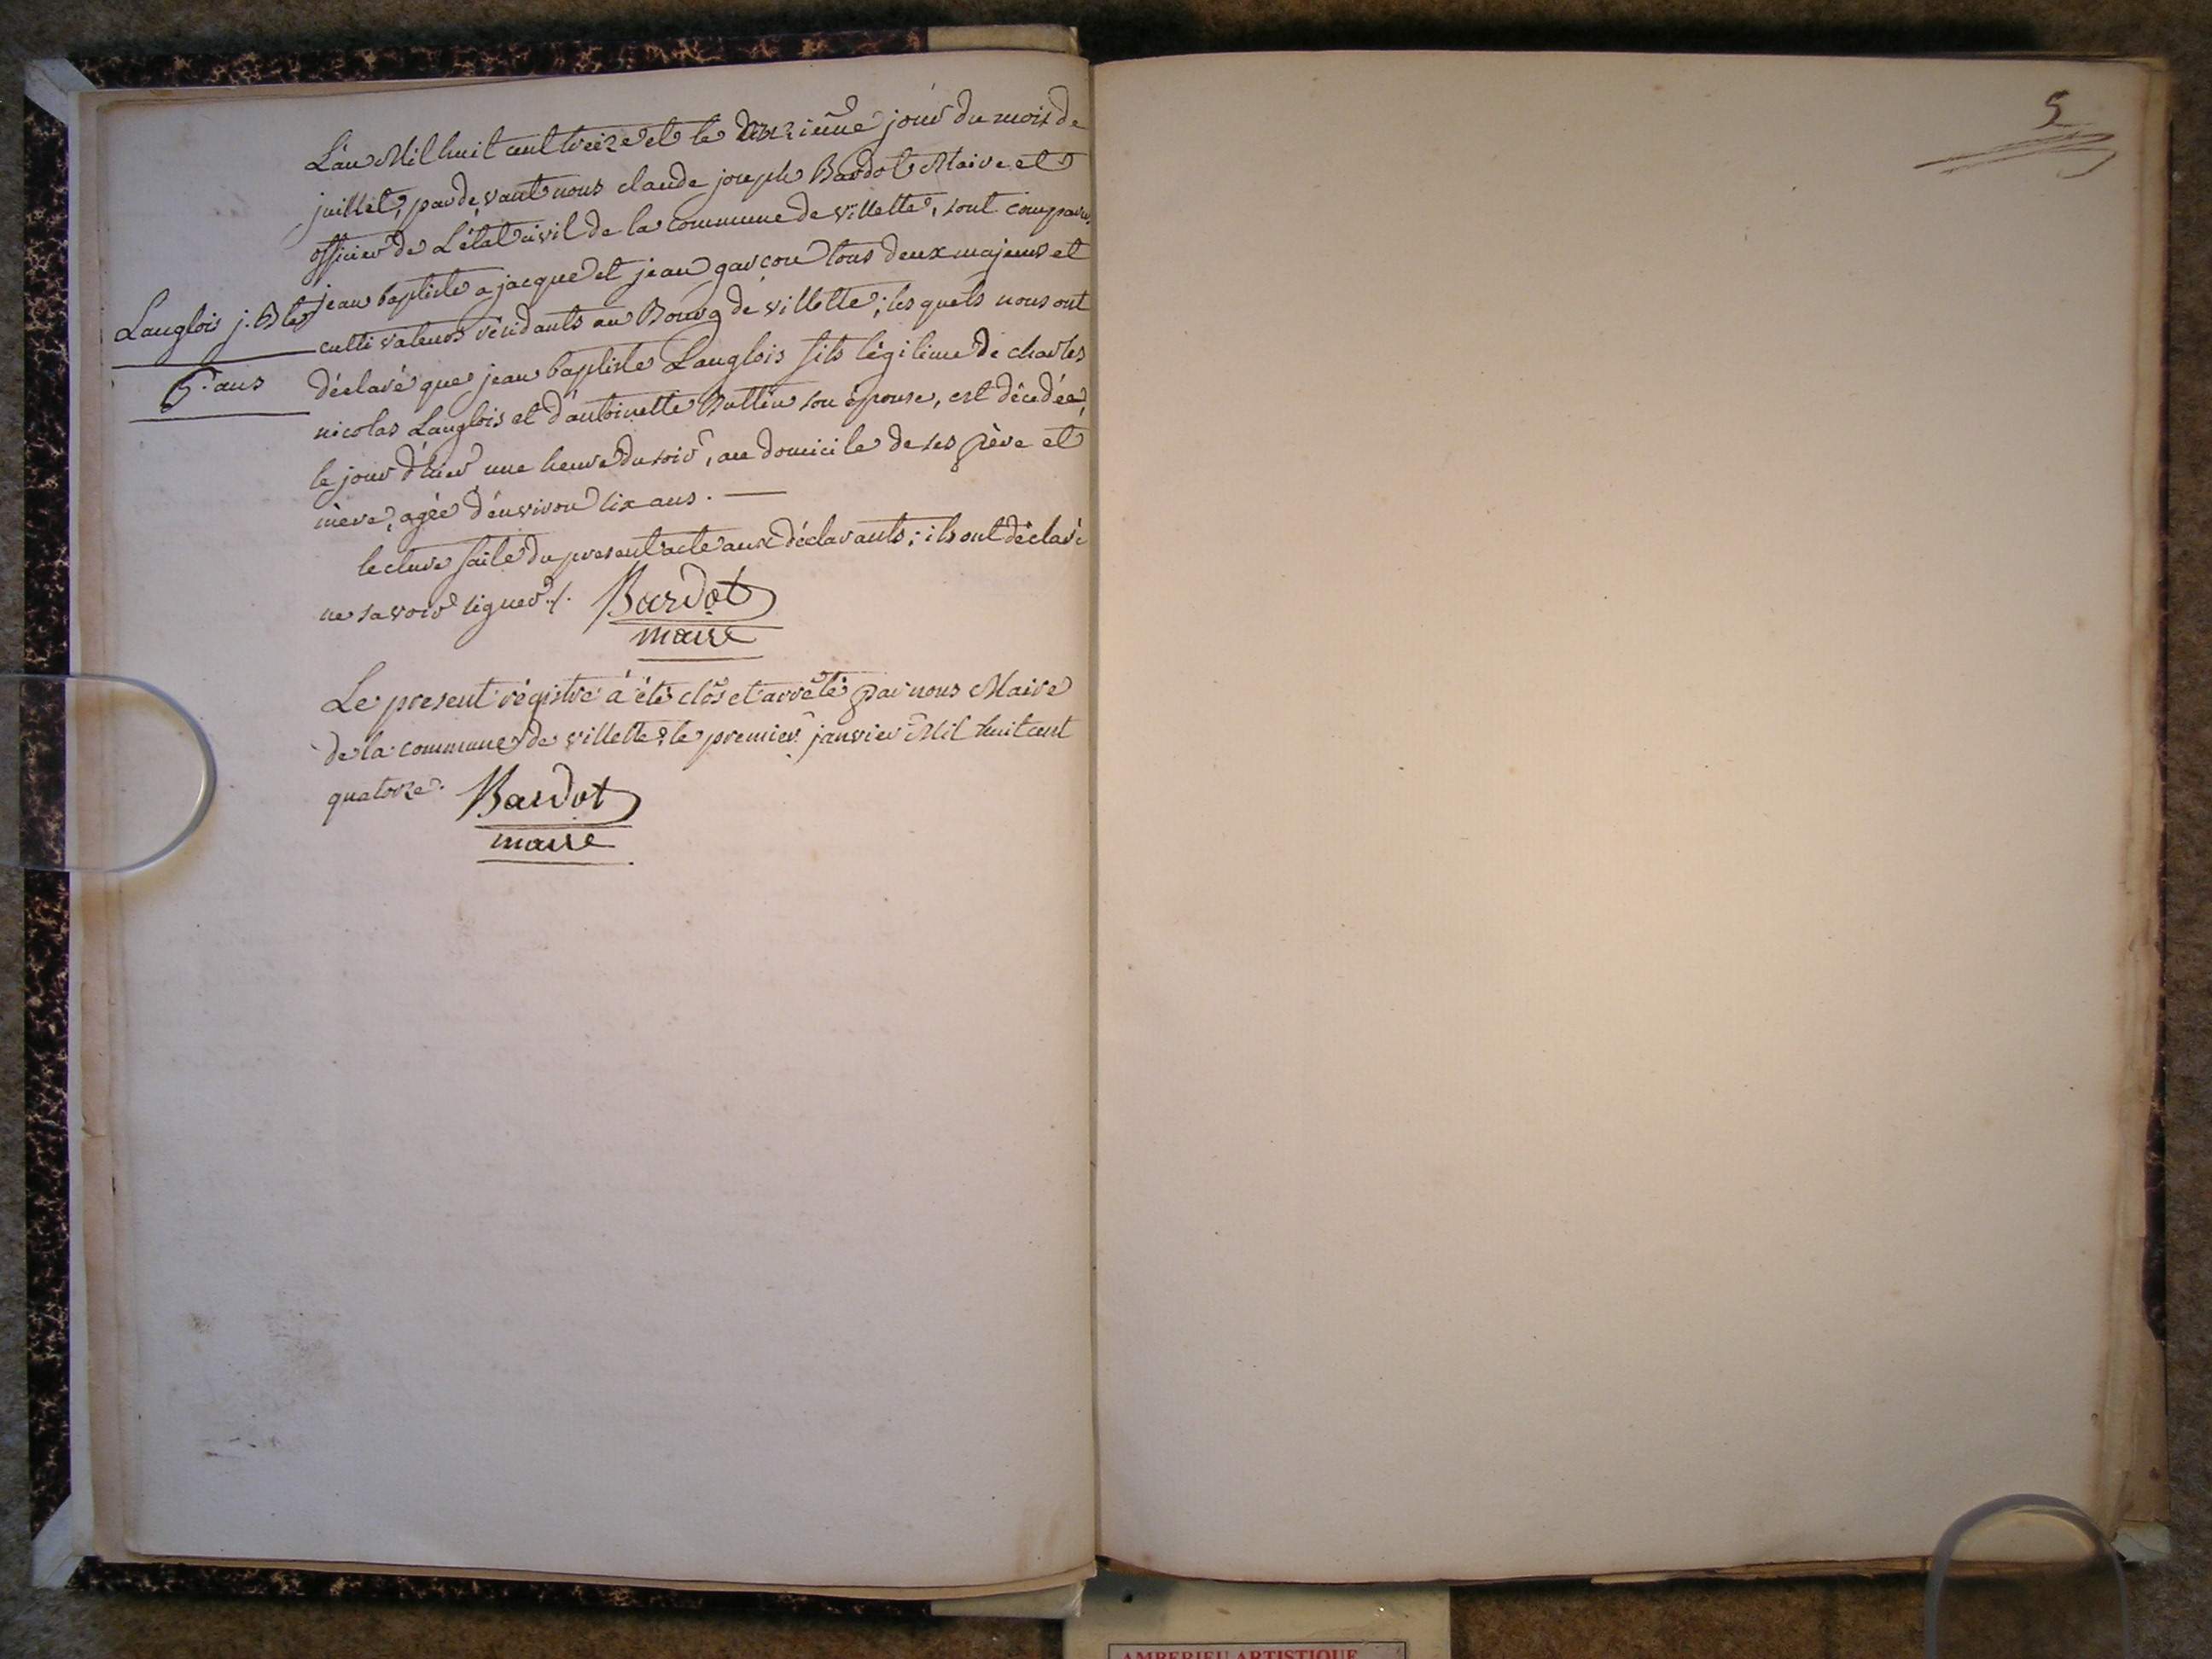 L'an Mil huit cent treize et le jour du mois de
juillet, par devant nous claude joseph Bardot Maire et
officier de L'état civil de la commune de villette, sont comparus
jean baptiste ajacque et jean garçon tous deux majeurs et
cultivateurs résidants au Bourg de villette ; les quels nous ont
Langlois j. Bte
6. ans
déclaré que jean baptiste Langlois fils légitime de charles
nicolas Langlois et d'antoinette Buttin son épouse, est décédée,
le jour d'hier une heure du soir, au domicile de ses père et
mère, agée d'environ six ans. —
lecture faite du present acte aux déclarants ; ils ont déclaré
ne savoir signer ./. Bardot
maire
Le present régistre à été clos et arrêté par nous Maire
de la commune de villette le premier janvier Mil huit cent
quatorze. Bardot
maire
5
AMBERIEU ARTISTIQUE